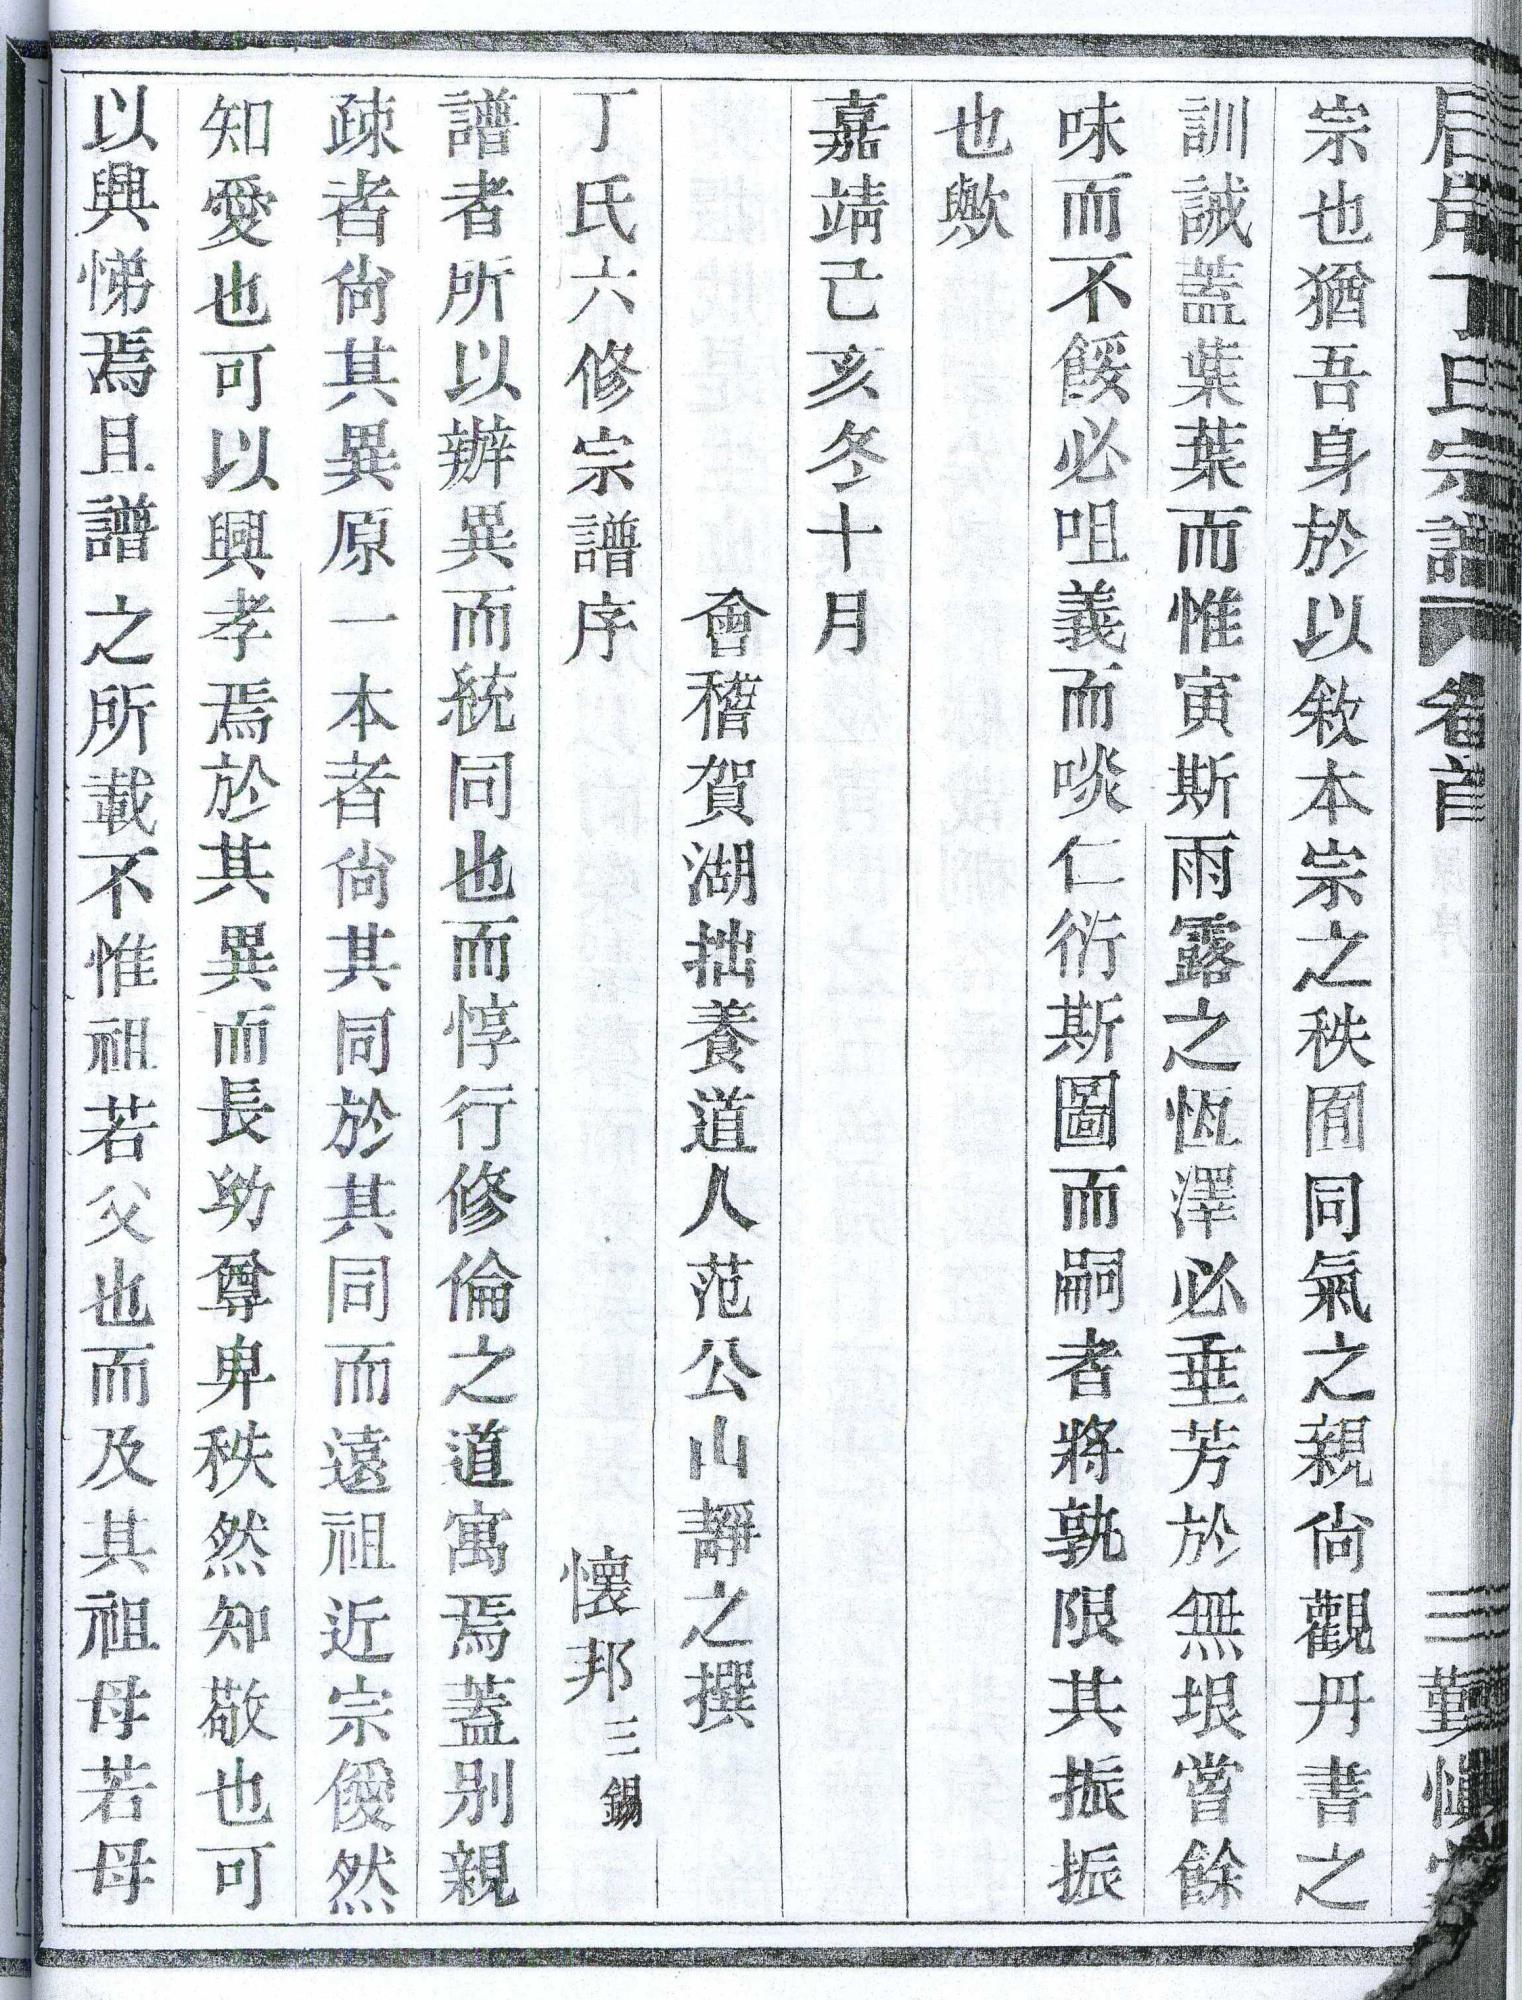 丁氏宗譜 卷首 三 勤慎
宗也猶吾身於以敘本宗之秩囿同氣之親尙觀丹書之
訓誡蓋葉葉而惟寅斯雨露之恆澤必垂芳於無垠嘗餘
味而不餒必咀義而啖仁衍斯圖而嗣者將孰限其振振
也歟
嘉靖己亥冬十月
會稽賀湖拙養道人范公山靜之撰
丁氏六修宗譜序 懷邦三錫
譜者所以辦異而統同也而惇行修倫之道寓焉蓋別親
疎者尙其異原一本者尙其同於其同而遠祖近宗僾然
知愛也可以興孝焉於其異而長幼尊卑秩然知敬也可
以興悌焉且譜之所載不惟祖若父也而及其祖母若母